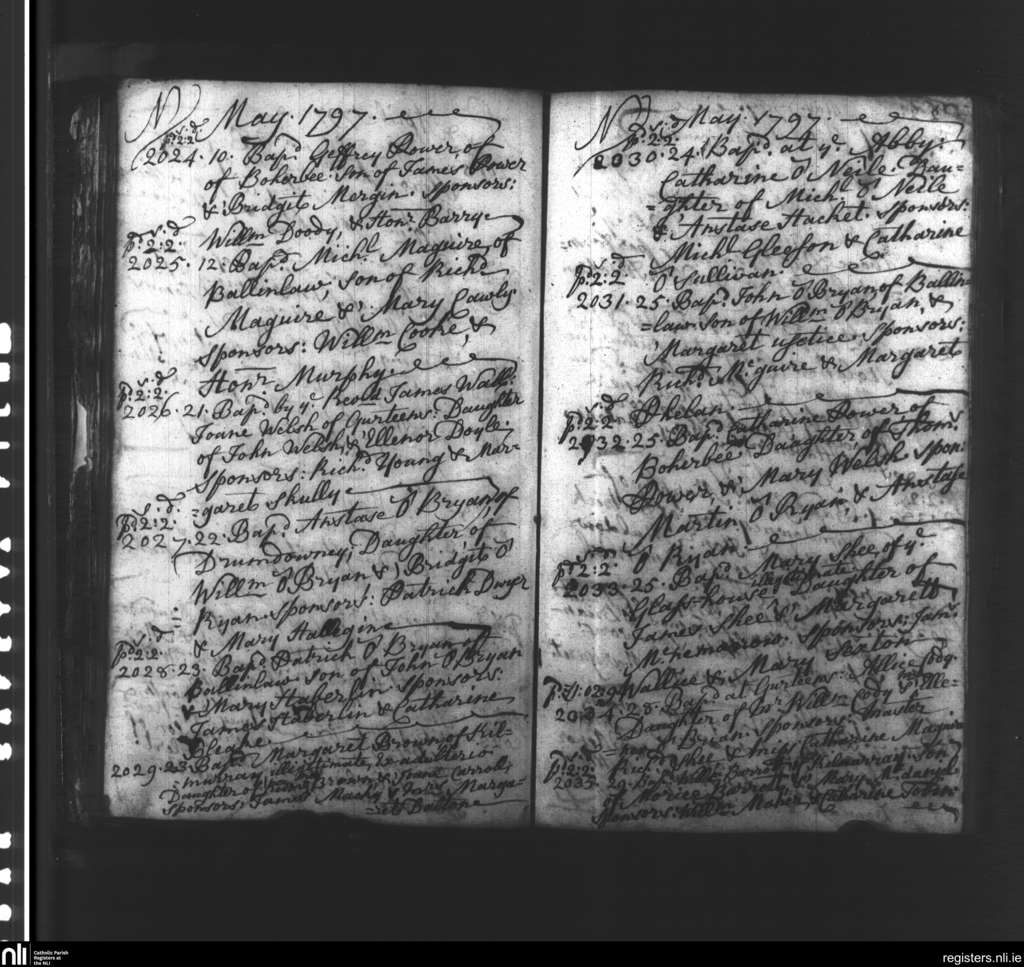 No May 1797.
s. d
pd. 2:2
2024. 10. Bapd. Geffrey Power of
of Bokerbee son of James Power
& Bridget Mergin. Sponsors:
Willm Doody, & Honr. Barry
s. d
pd. 2:2.
2025. 12. Bapd. Michl. Maguire of
Ballinlaw, son of Richd
Maguire & Mary Cawly
Sponsors: Willm Cooke, &
Honr Murphy
s. d
pd. 2:2.
2026. 21. Bapd. by ye Revd. James Walh:
Joane Welsh of Gurteens. Daughter
of John Welsh, & Ellenor Doyle.
Sponsors: Richd. Young & Mar-
=garet Skully
s. d.
pd. 2:2.
2027. 22. Bapd. Anstase O Bryan, of
Drumdowney, Daughter of
Willm O Bryan & Bridget O
Ryan. Sponsors: Patrick Dwyr
& Mary Hallgine
s. d
pd. 2:2.
2028. 23. Bapd. Patrick O Bryan of
Ballinlaw son of John O Bryan
& Mary Haberlin Sponsors:
James Haberlin & Catharine
Bleahe
2029. 23. Bapd. Margaret Brown of Kil-
=murray, illegitimate, ex adulterio
Daughter of Brown & Joane Carroll,
Sponsors: James Macky & Margа-
=ret Baldone
No May. 1797.
s. d
pd. 2:2.
2030. 24. Bapd. at ye. Abby:
Catharine O Neile. Dau-
=ghter of Michl. O Neile
& Anstase Hacket. Sponsors:
Michl. Gleeson & Catharine
O Sullivan.
s. d
pd. 2:2
2031. 25. Bapd. John O Bryan of Ballin-
=law son of Willm O Bryan, &
Margaret ujetice Sponsors:
Richd. McGuire & Margaret
Phelan.
s. d
pd. 2:2
2032. 25. Bapd. Catharine Power of
Bokerbee Daughter of Thom.
Power, & Mary Welsh Spon
Martin O Ryan, & Anastase
O Ryan.
s. d
pd. 2:2.
2033. 25. Bapd. Mary Shee of ye.
Glass-house, illegitimate Daughter of
James Shee & Margarett
Mcnemarow. Sponsors: Jams
Wallice & Mary Sexton
2034. 28. Bapd. at Gurteens: Allice Cody
Daughter of Mr. Willm Cody &
Bryan. Sponsors: Master
Richd Shee & Miss Catharine Maguire
s. d
pd. 2:2
2035. 29. Bapd. Willm Barrott of Kilmurray. son
of Morice Barrott, & Mary McDaniel
Sponsors: Willm Maher, & Catharine Tobin
nli
Catholic Parish
Registers at
the NLI
registers.nli.ie